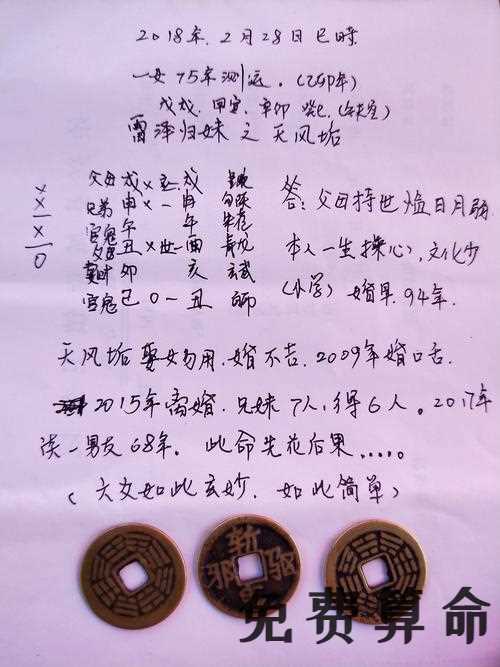 2018年.2月28日巳时
一女75年测运.(乙卯年)
戊戌.甲寅.辛卯 癸巳.(午未空)
雷泽归妹之天风垢
父母戌x 戌
兄弟申x一申 勾陈
官鬼午 午 朱雀
父母丑x世一酉 青龙
妻财卯 亥 玄武
官鬼巳0一丑
x
x
x
0
答:父母持世 日月
本人一生操心,文化少
(小学)婚早.94年.
天风垢娶女勿用,婚不吉.2009年婚口舌.
2015年离婚.兄妹7人,得6人。2017年
谈一男友68年. 此命先花后果.....。
(六爻如此玄妙.如此简单)
斩 驱 邪
免费算命